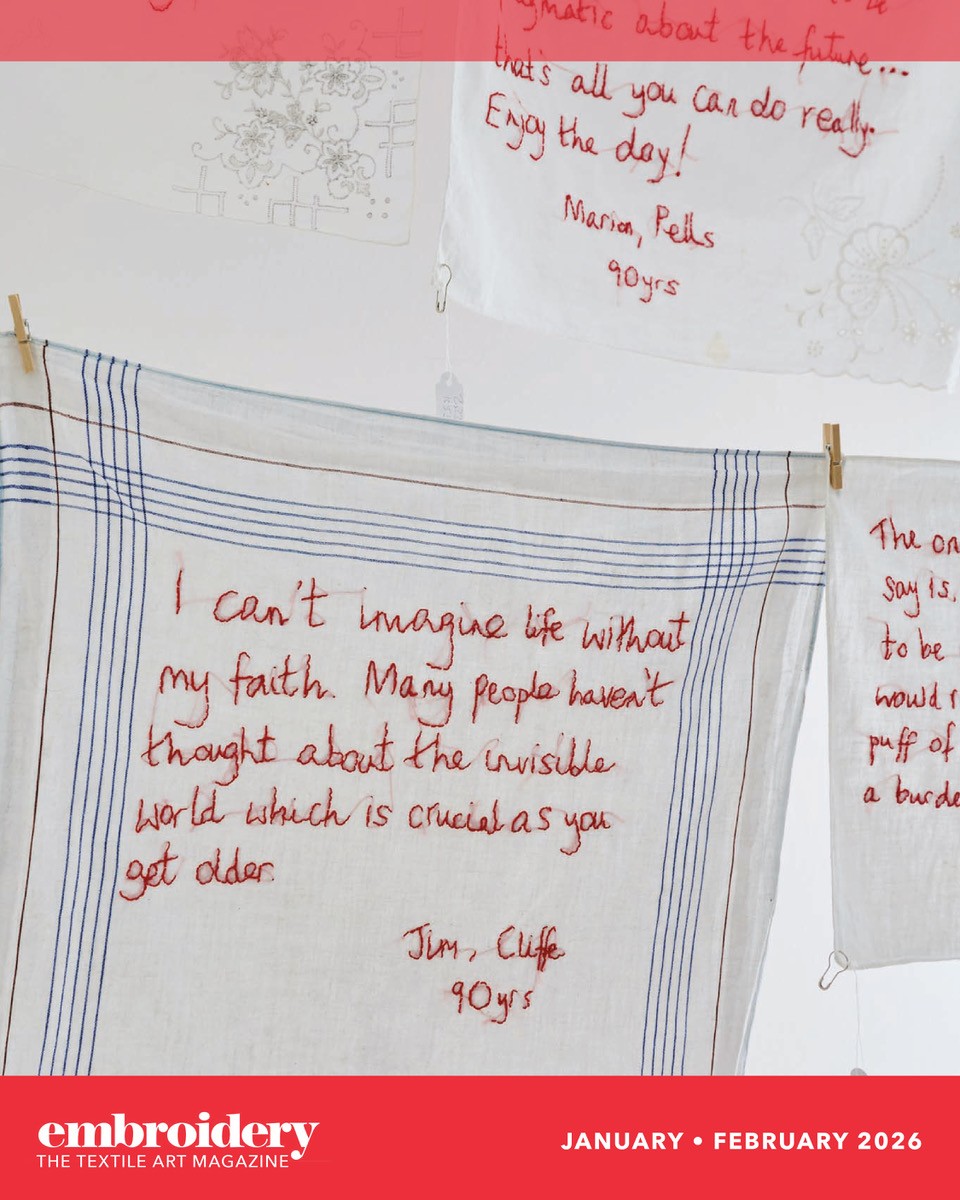 about the future...
that's all you can do really.
Enjoy the day!
Marion, Pells
90yrs
I can't imagine life without
my faith. Many people haven't
thought about the invisible
world which is crucial as you
get older.
Jim, Cliffe
90yrs
The
say is,
to be
would
puff of
a
embroidery
THE TEXTILE ART MAGAZINE
JANUARY • FEBRUARY 2026